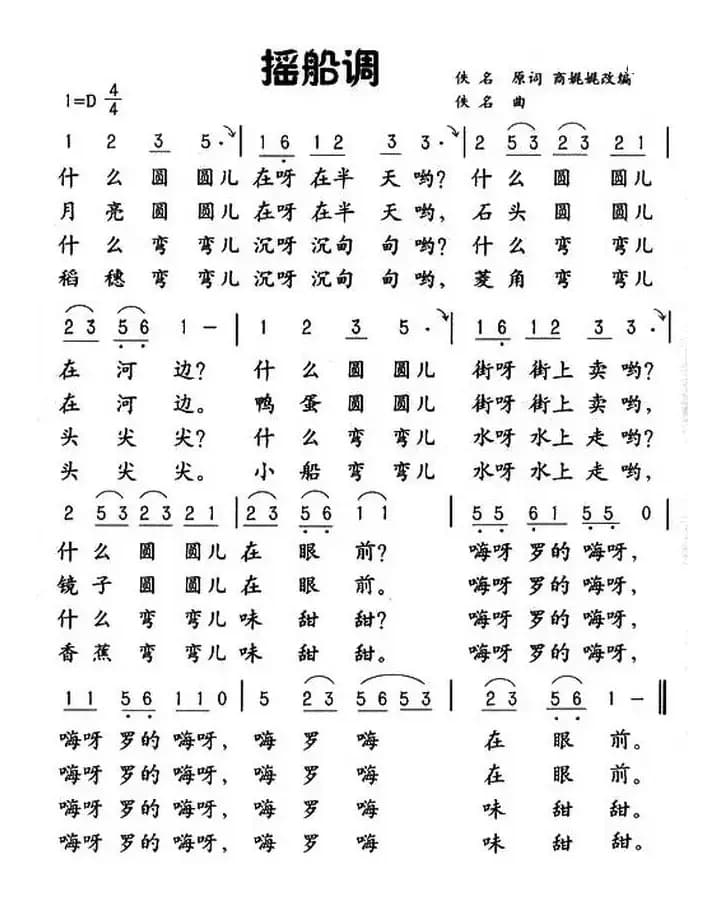 摇船调
佚名 原词 商娓娓改编
1=D 4/4
佚名 曲
1 2 3 5· | 1 6 1 2 3 3· | 2 5 3 2 3 2 1
什么圆圆儿在呀在半天哟？什么圆圆儿
月亮圆圆儿在呀在半天哟，石头圆圆儿
什么弯弯儿沉呀沉甸甸哟？什么弯弯儿
稻穗弯弯儿沉呀沉甸甸哟，菱角弯弯儿
2 3 5 6 1 － | 1 2 3 5· | 1 6 1 2 3 3· |
在河边？什么圆圆儿街呀街上卖哟？
在河边。鸭蛋圆圆儿街呀街上卖哟，
头尖尖？什么弯弯儿水呀水上走哟？
头尖尖。小船弯弯儿水呀水上走哟，
2 5 3 2 3 2 1 | 2 3 5 6 1 1 | 5 5 6 1 5 5 0 |
什么圆圆儿在眼前？嗨呀罗的嗨呀，
镜子圆圆儿在眼前。嗨呀罗的嗨呀，
什么弯弯儿味甜甜？嗨呀罗的嗨呀，
香蕉弯弯儿味甜甜。嗨呀罗的嗨呀，
1 1 5 6 1 1 0 | 5 2 3 5 6 5 3 | 2 3 5 6 1 － ‖
嗨呀罗的嗨呀，嗨罗嗨在眼前。
嗨呀罗的嗨呀，嗨罗嗨在眼前。
嗨呀罗的嗨呀，嗨罗嗨味甜甜。
嗨呀罗的嗨呀，嗨罗嗨味甜甜。